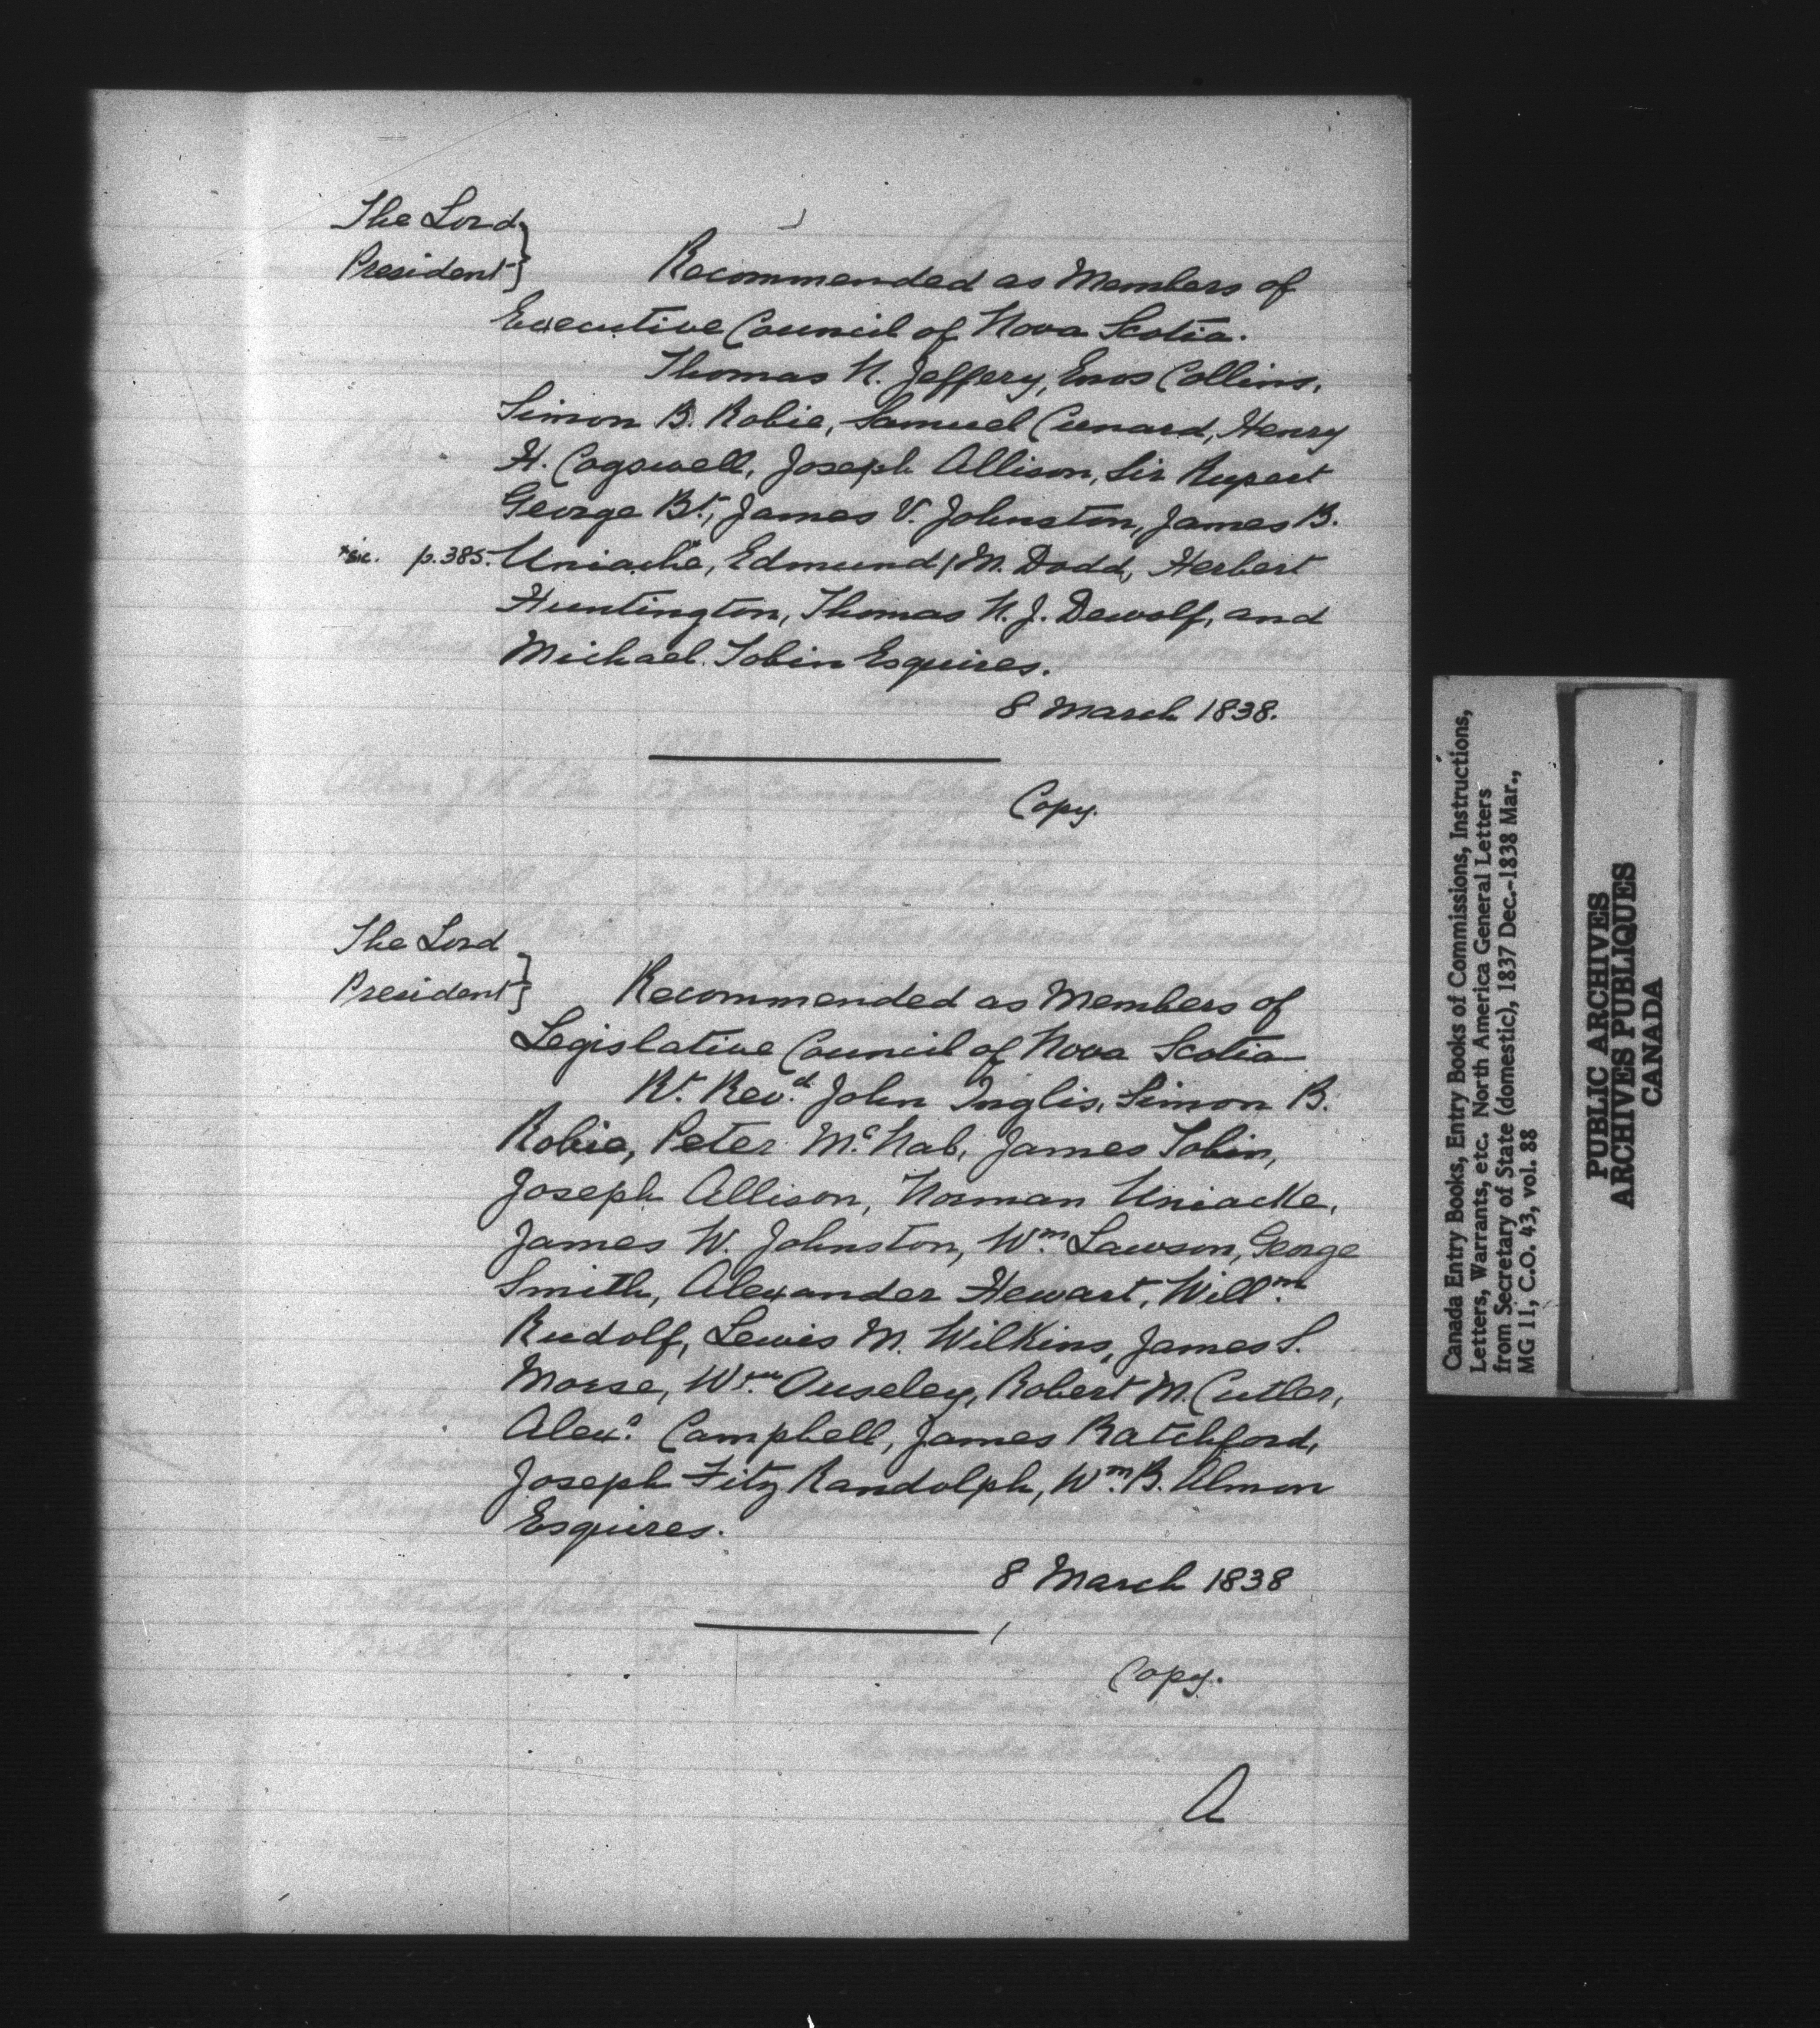 The Lord
President }
Recommended as Members of
Executive Council of Nova Scotia.
Thomas N. Jeffery, Enos Collins,
Simon B. Robie, Samuel Cunard, Henry
H. Cogswell, Joseph Allison, Sir Rupert
George Bt, James V. Johnston, James B.
*sic. p.385. Uniache*, Edmund / M. Dodd, Herbert
Huntington, Thomas N. J. Dewolf, and
Michael Tobin Esquires.
8 March 1838.
Copy.
The Lord
President }
Recommended as Members of
Legislative Council of Nova Scotia
Rt. Revd. John Inglis, Simon B.
Robie, Peter McNab, James Tobin,
Joseph Allison, Norman Uniacke,
James W. Johnston, Wm. Lawson, George
Smith, Alexander Stewart, Willm.
Rudolf, Lewis M. Wilkins, James S.
Morse, Wm. Ouseley, Robert M. Cutler,
Alexr. Campbell, James Ratchford,
Joseph Fitz Randolph, Wm. B. Almon
Esquires.
8 March 1838
Copy.
A
Canada Entry Books, Entry Books of Commissions, Instructions,
Letters, Warrants, etc. North America General Letters
from Secretary of State (domestic), 1837 Dec.-1838 Mar.,
MG 11, C.O. 43, vol. 88
PUBLIC ARCHIVES
ARCHIVES PUBLIQUES
CANADA